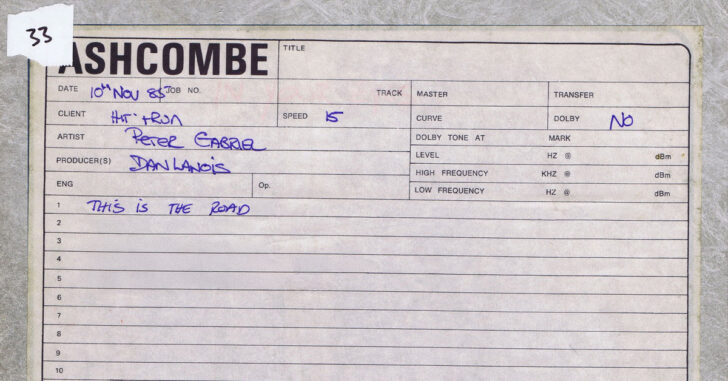 33
ASHCOMBE
TITLE
DATE 10th Nov 85 JOB NO. TRACK MASTER TRANSFER
CLIENT HIT + RUN SPEED 15 CURVE DOLBY NO
ARTIST PETER GABRIEL DOLBY TONE AT MARK
PRODUCER(S) DAN LANOIS LEVEL HZ @ dBm
HIGH FREQUENCY KHZ @ dBm
ENG Op. LOW FREQUENCY HZ @ dBm
1 THIS IS THE ROAD
2
3
4
5
6
7
8
9
10